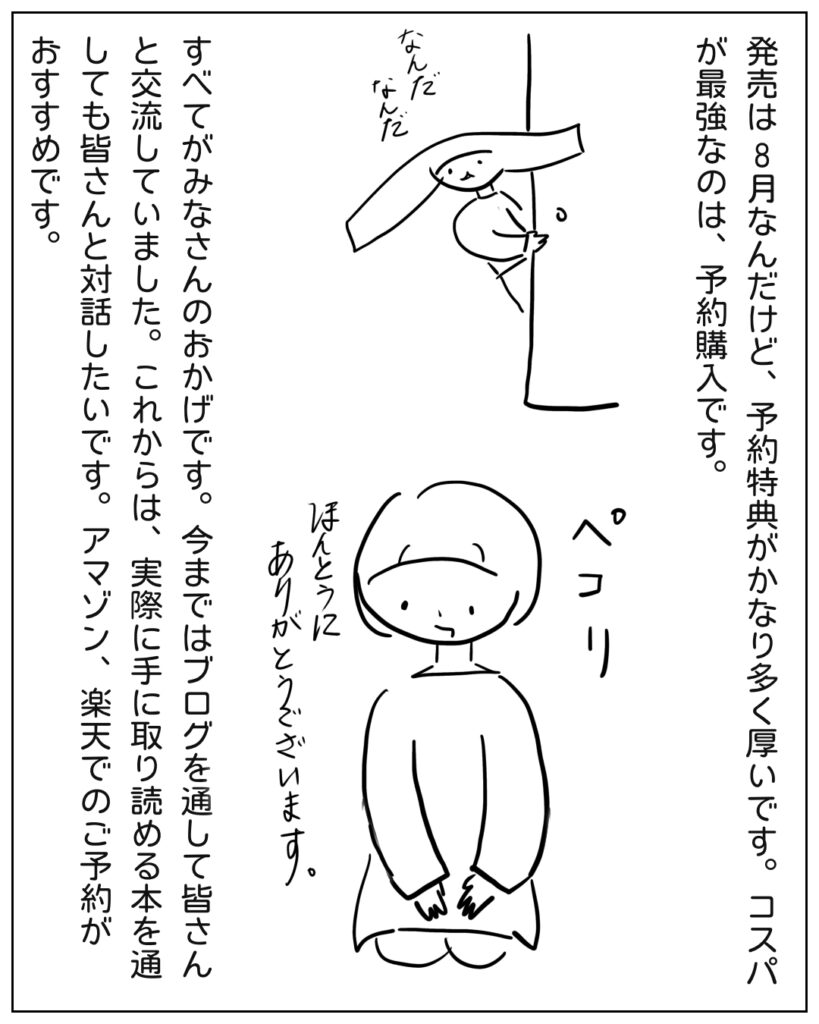 発売は8月なんだけど、予約特典がかなり多く厚いです。コスパ
が最強なのは、予約購入です。
なんだ
なんだ
ペコリ
ほんとうに
ありがとうございます。
すべてがみなさんのおかげです。今まではブログを通して皆さん
と交流していました。これからは、実際に手に取り読める本を通
しても皆さんと対話したいです。アマゾン、楽天でのご予約が
おすすめです。